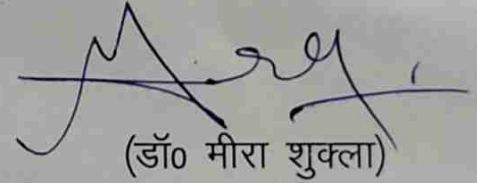 (डॉ0 मीरा शुक्ला)